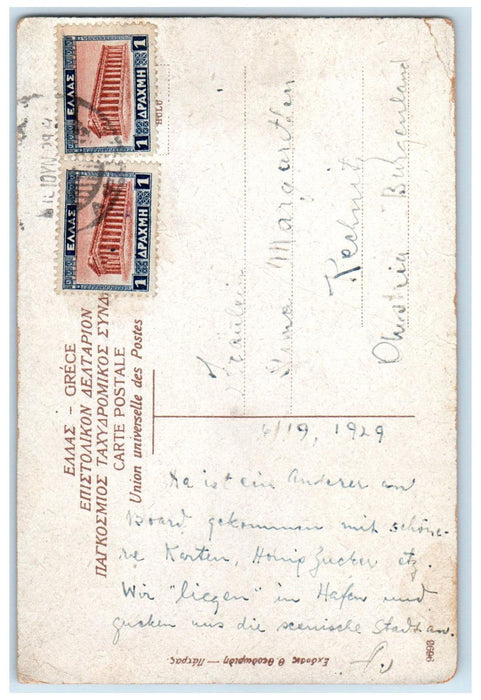 ΕΛΛΑΣ
1 ΔΡΑΧΜΗ 1
ΕΛΛΑΣ
1 ΔΡΑΧΜΗ 1
ΕΛΛΑΣ — GRÈCE
ΕΠΙΣΤΟΛΙΚΟΝ ΔΕΛΤΑΡΙΟΝ
ΠΑΓΚΟΣΜΙΟΣ ΤΑΧΥΔΡΟΜΙΚΟΣ ΣΥΝΔ
CARTE POSTALE
Union universelle des Postes
Fräulein
Margarethen
Austria Burgenland
1929
Da ist ein Anderer an
Board gekommen mit schöne-
re Karten, Honig Zucker etz.
Wir "liegen" in Hafen und
gucken uns die scenische Stadt an.
Εκδοσις Θ. Θεοδωρίδη — Πάτρας